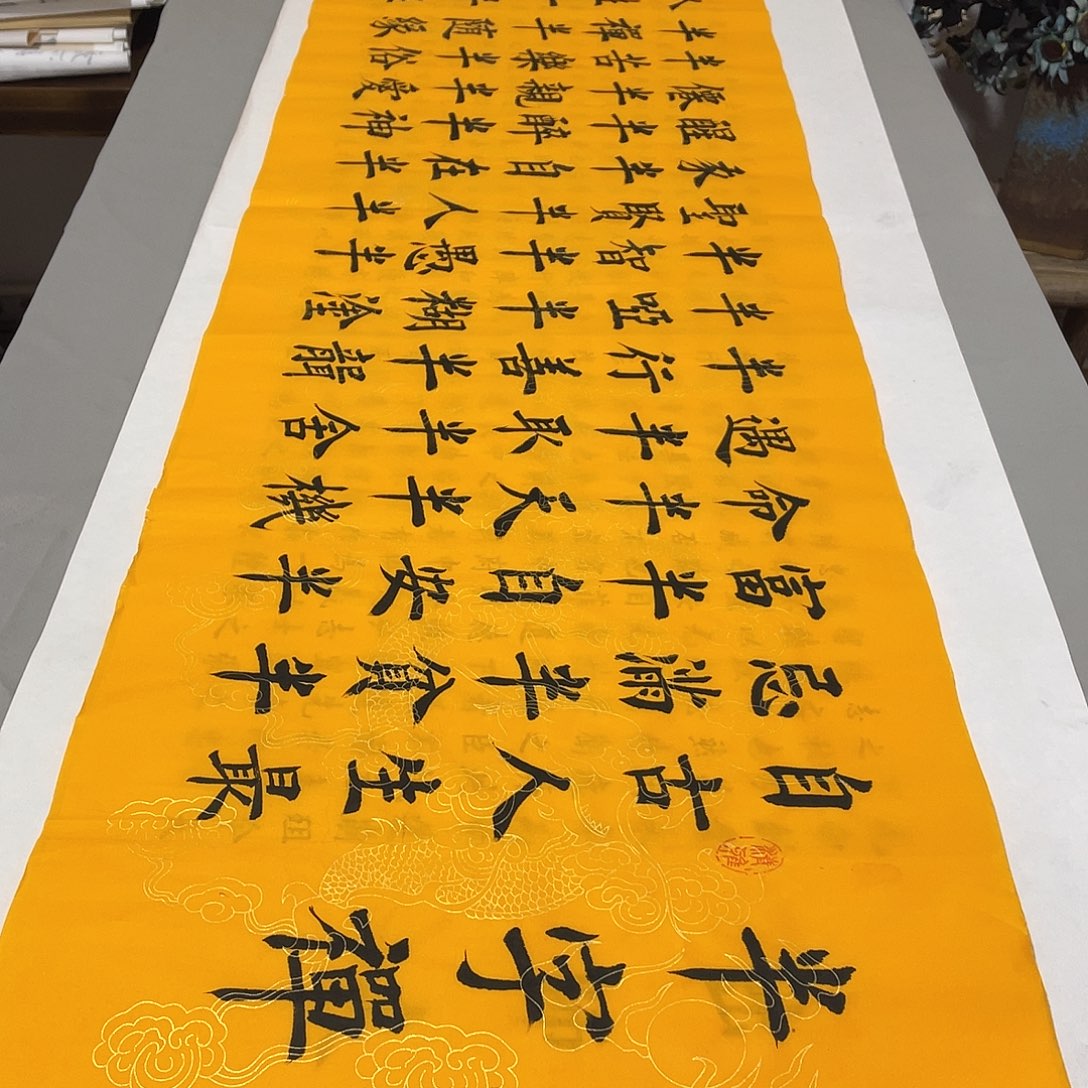 半字禪
自古人生最
忌滿半貧半
富半自安半
命半天半機
遇半取半舍
半行善半聾
半啞半糊塗
半智半愚半
聖賢半人半
我半自在半
醒半醉半神
僊半親半愛
半苦樂半俗
半禪半隨緣
人